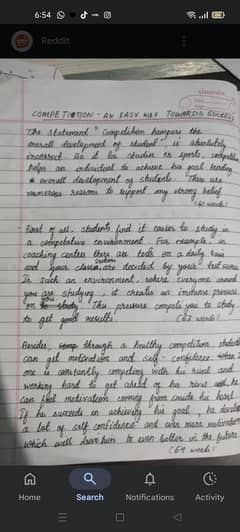 6:54
Reddit
COMPETITION - AN EASY WAY TOWARDS SUCCESS
The statement "Competition hampers the
overall development of student" is absolutely
incorrect. Be it studies or sports, competition
helps an individual to achieve his goal leading
overall development of students. There are
numerous reasons to support my strong belief
(40 words)
First of all, students find it easier to study in
a competitive environment. For example, in
coaching centres there are tests on a daily basis
and your class are decided by your test
In such an environment, where everyone around
you are studying, it creates an immense pressure
on This pressure compels you to study
to get good results. words)
Besides, through a healthy competition, students
can get motivation and self-confidence. When
one is constantly competing with his rival and
working hard to get ahead of his rival he
can feel motivation coming from inside his heart.
If he succeeds in achieving his goal, he develops
a lot of self confidence and even more motivation
which will drive him to even better in the future.
(64 words)
Home
Search
Notifications
Activity